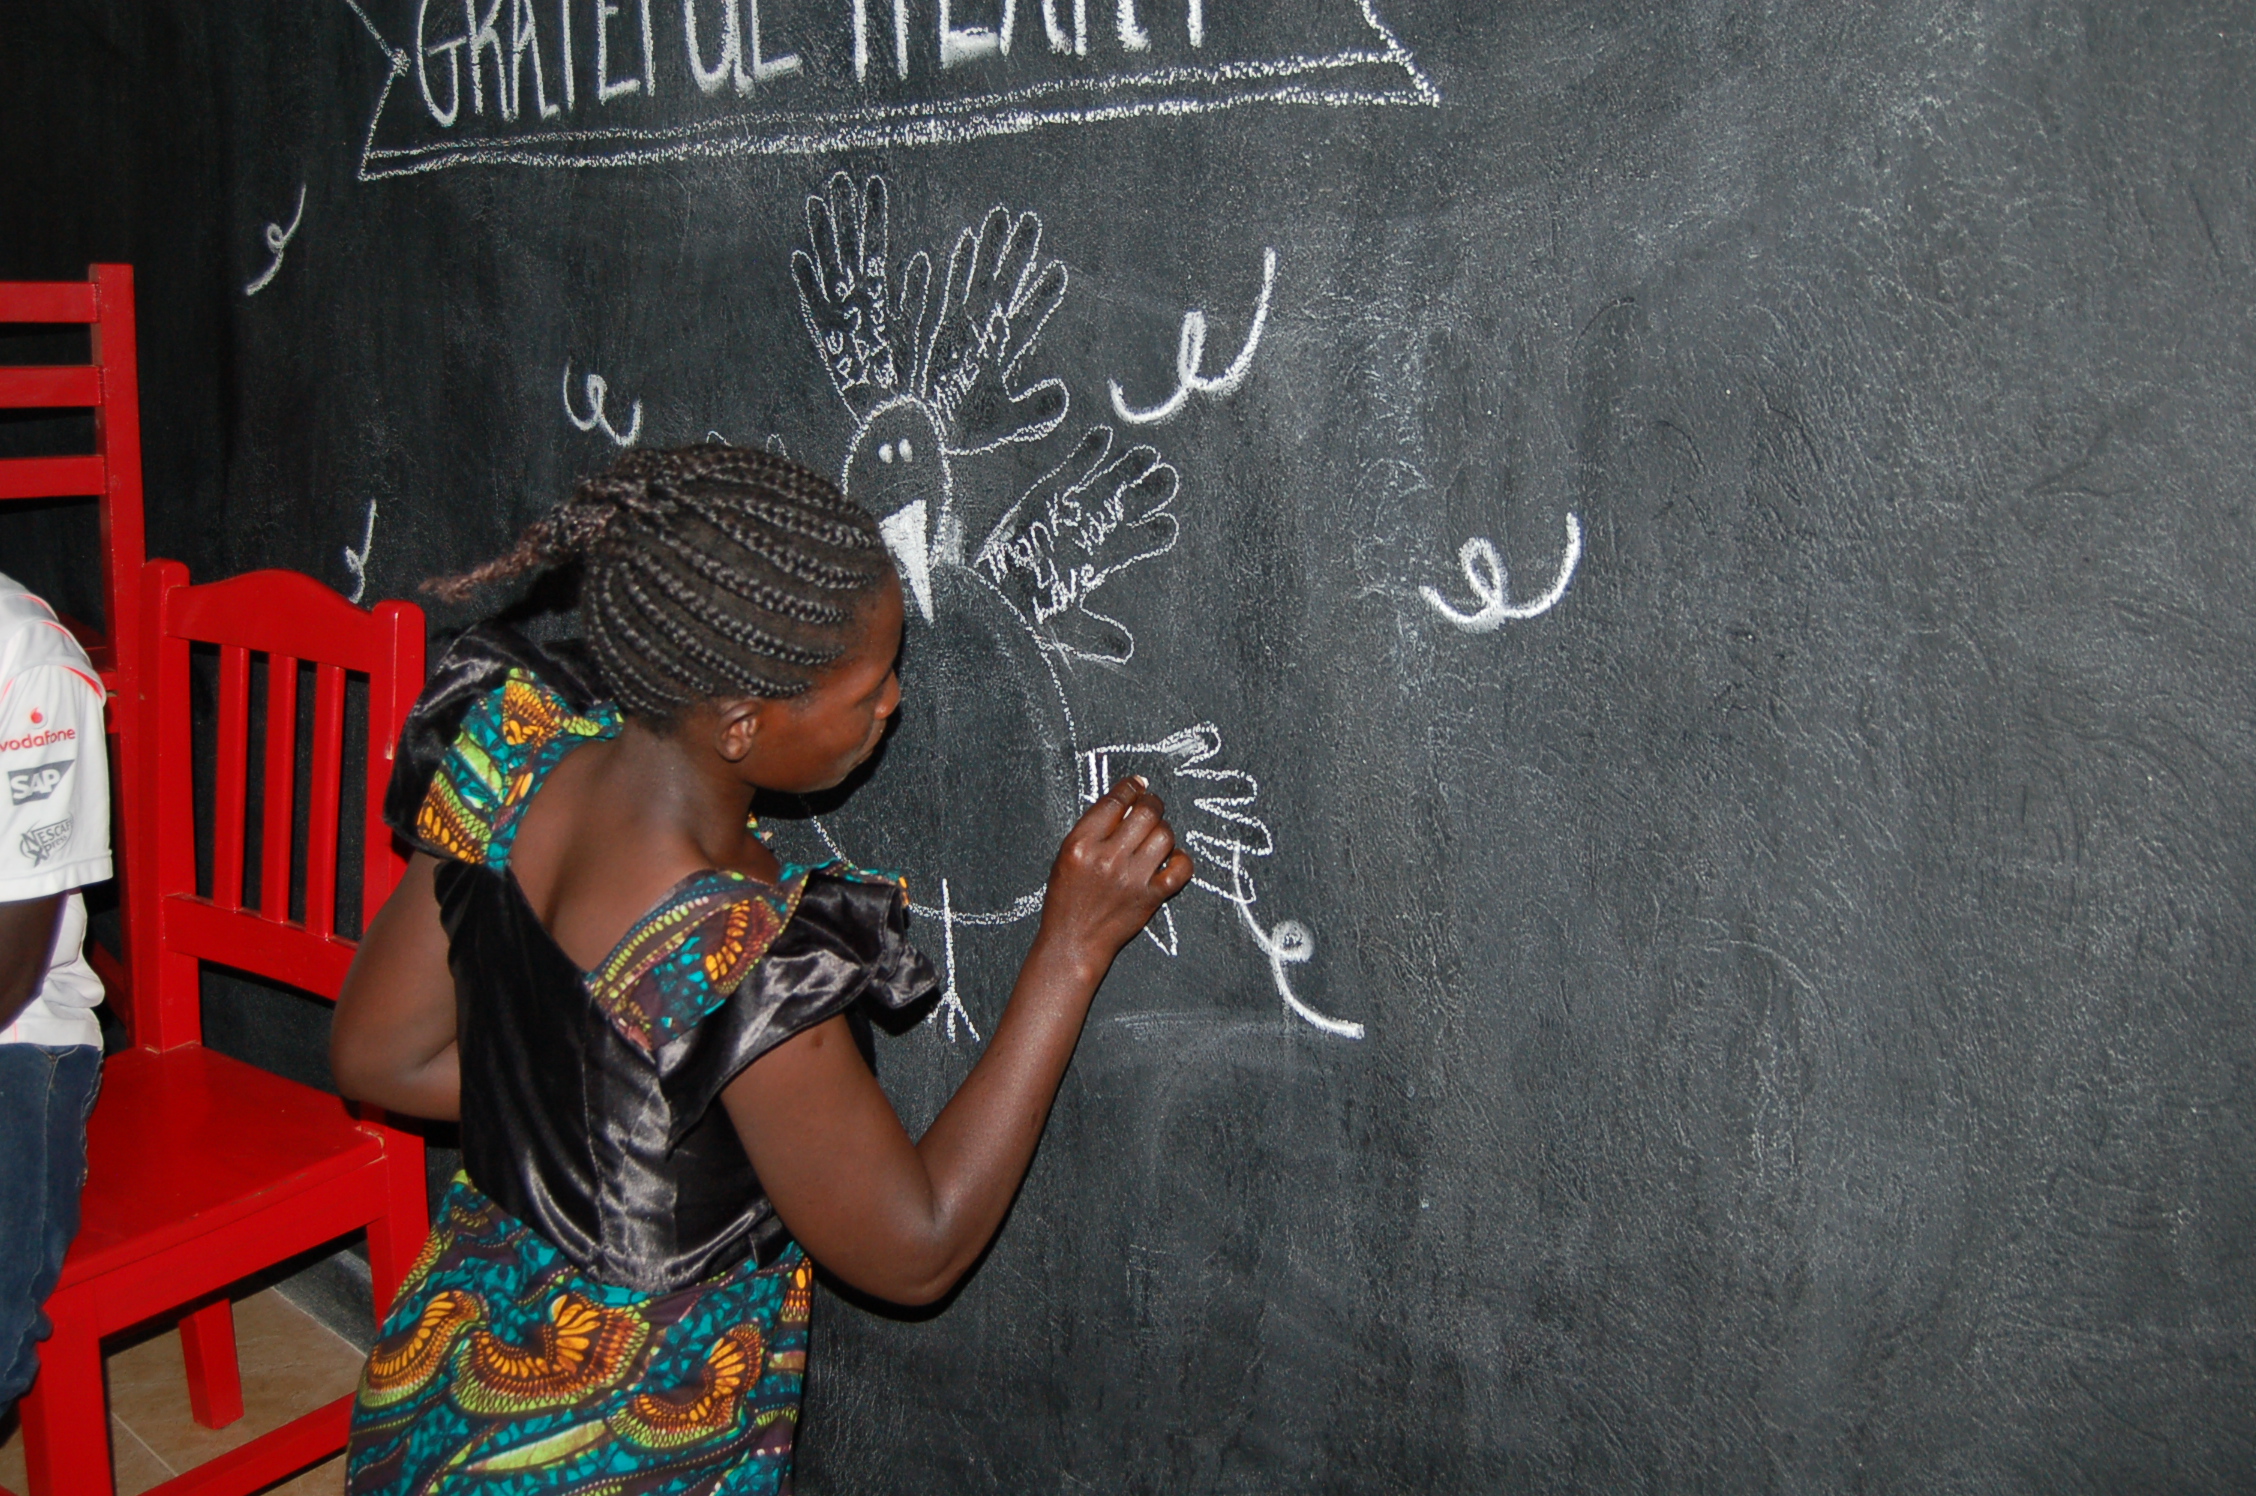 GRATEFUL HEART
thanks
4 your
Love
vodafone
SAP
NESCAFÉ
Xpress